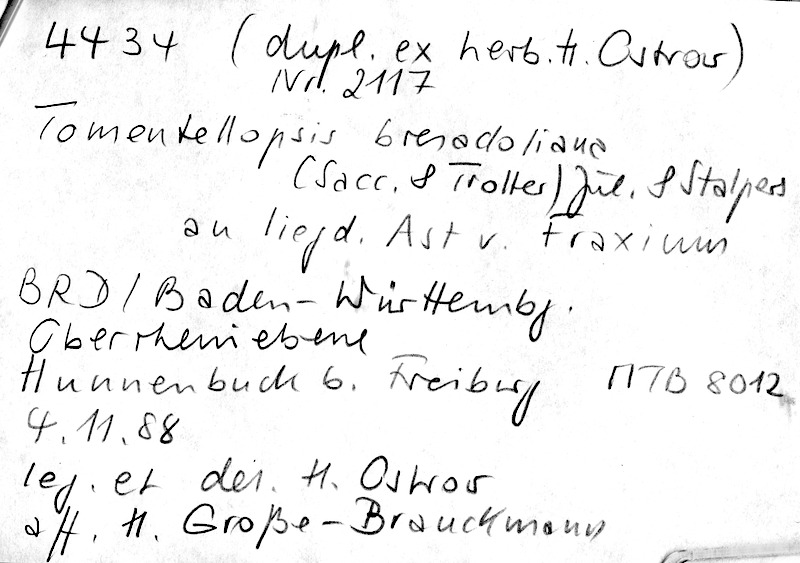 4434 (dupl. ex herb. H. Ostrow)
Nr. 2117
Tomentellopsis bresadoliana
(Sacc. & Trotter) Jül. & Stalpers
an liegd. Ast v. Fraxinus
BRD / Baden-Württembg.
Oberrheinebene
Hunnenbuck b. Freiburg MTB 8012
4.11.88
leg. et det. H. Ostrow
aff. H. Große-Brauckmann